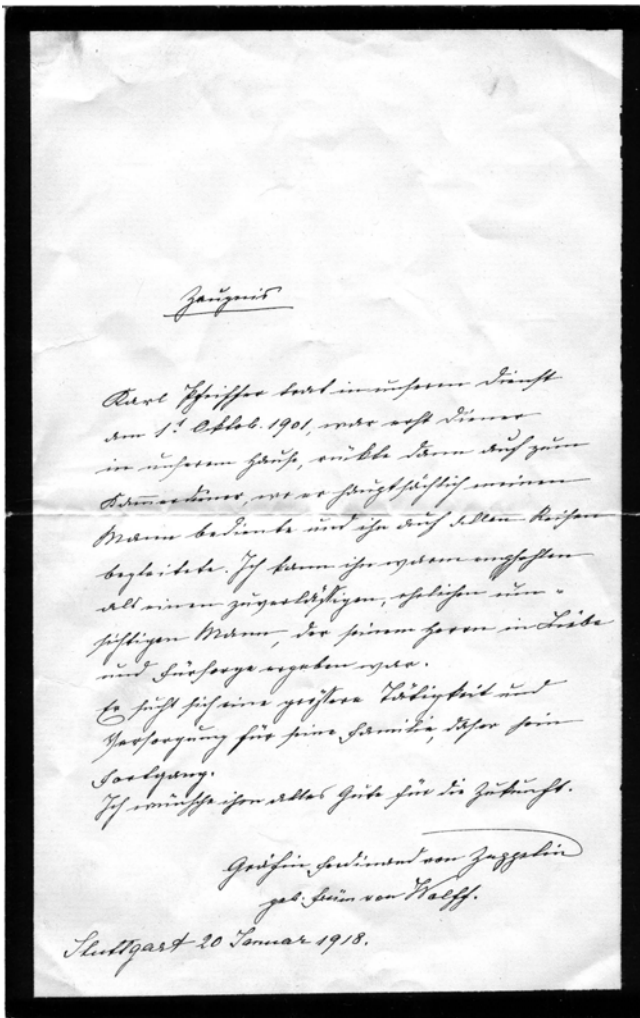 Zeugnis
Karl Pfeiffer trat in unseren Dienst
am 1t Oktob. 1901, war erst Diener
in unserem Hause, rückte dann auf zum
Kammerdiener, wo er hauptsächlich meinen
Mann bediente und ihn auf allen Reisen
begleitete. Ich kann ihn warm empfehlen
als einen zuverlässigen, ehrlichen um-
sichtigen Mann, der seinem Herrn in Liebe
und Fürsorge ergeben war.
Er sucht sich eine grössere Tätigkeit und
Versorgung für seine Familie, daher sein
Fortgang.
Ich wünsche ihm alles Gute für die Zukunft.
Gräfin Ferdinand von Zeppelin
geb. von Wolff.
Stuttgart 20 Januar 1918.